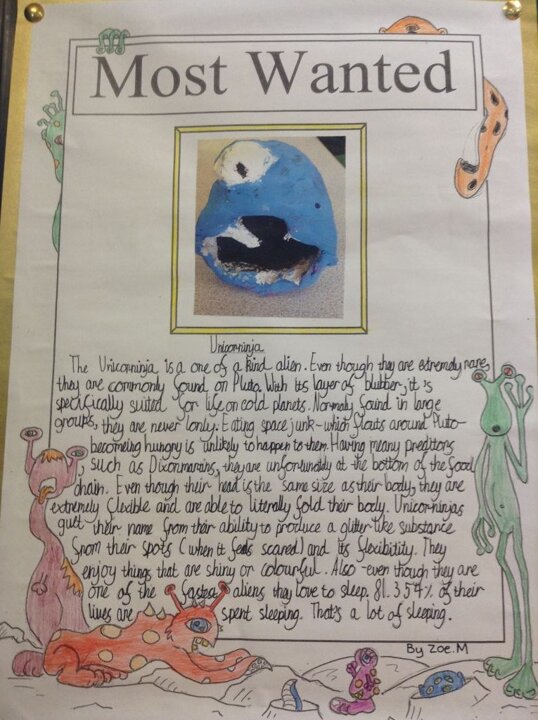 Most Wanted
Unicorninja
The Unicorninja is a one of a kind alien. Even though they are extremely rare,
they are commonly found on Pluto. With its layer of blubber, it is
specifically suited for life on cold planets. Normaly found in large
groups, they are never lonly. Eating space junk - which floats around Pluto-
becomeing hungry is unlikely to happen to them. Having meany preditors
, such as Dixonmarains, they are unfortunatly at the bottom of the food
chain. Even though their head is the same size as their body, they are
extremely flexible and are able to literally fold their body. Unicorninjas
guet their name from their ability to produce a glitter like substance
from their spots (when it feels scared) and its flexibitity. They
enjoy things that are shiny or colourful. Also -even though they are
one of the fastest aliens they love to sleep. 81.354% of their
lives are spent sleeping. That's a lot of sleeping.
By Zoe.M